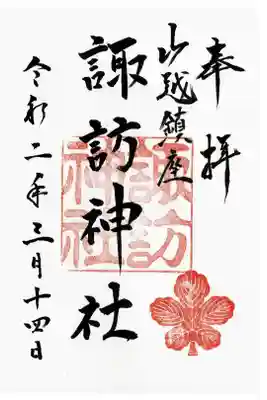 奉拝
山越鎮座
諏訪神社
令和二年三月十四日
諏訪神社